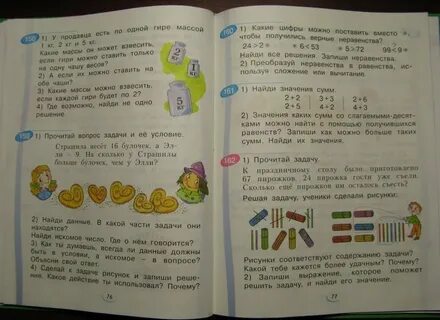 158 1) У продавца есть по одной гире массой
1 кг, 2 кг и 5 кг.
Какие массы он может взвесить,
если гири можно ставить только
на одну чашу весов?
2) А если их можно ставить на
обе чаши?
3) Какие массы можно взвесить,
если каждой гири будет по 2?
4) Где возможно, найди не одно
решение.
159 1) Прочитай вопрос задачи и её условие.
Страшила несёт 16 булочек, а Эл-
ли – 9. На сколько у Страшилы
больше булочек, чем у Элли?
2) Найди данные. В какой части задачи они
находятся?
Найди искомое число. Где о нём говорится?
3) Как ты думаешь, всегда ли данные должны
быть в условии, а искомое – в вопросе?
Объясни свой ответ.
4) Сделай к задаче рисунок и запиши реше-
ние. Какое действие ты использовал? Почему?
76
160 1) Какие цифры можно поставить вместо
*, чтобы получились верные неравенства?
24 > 2* *6 < 53 *5 > 72 99 < 9*
Найди все решения. Запиши неравенства.
2) Преобразуй неравенства в равенства, ис-
пользуя сложение или вычитание.
161 1) Найди значения сумм.
2 + 2 3 + 3 2 + 6
2 + 5 4 + 4 6 + 3
2) Значения каких сумм со слагаемыми-десят-
ками можно найти с помощью получившихся
равенств? Запиши как можно больше таких
сумм. Найди их значения.
162 1) Прочитай задачу.
К праздничному столу было приготовлено
67 пирожков. 24 пирожка гости уже съели.
Сколько ещё пирожков им осталось съесть?
Решая задачу, ученики сделали рисунки:
Рисунки соответствуют содержанию задачи?
Какой тебе кажется более удачным? Почему?
2) Запиши выражение, которое поможет
решить задачу, и найди его значение.
77